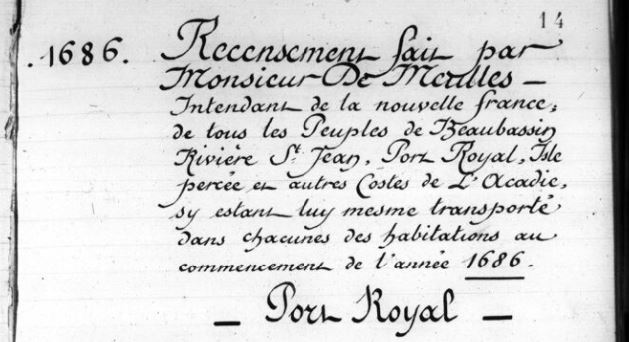 14
.1686. Recensement fait par
Monsieur De Meulles –
Intendant de la nouvelle france,
de tous les Peuples de Beaubassin
Rivière St. Jean, Port Royal, Isle
percée et autres Costes de L'Acadie,
sy estant luy mesme transporté
dans chacunes des habitations au
commencement de l'année 1686.
– Port Royal –